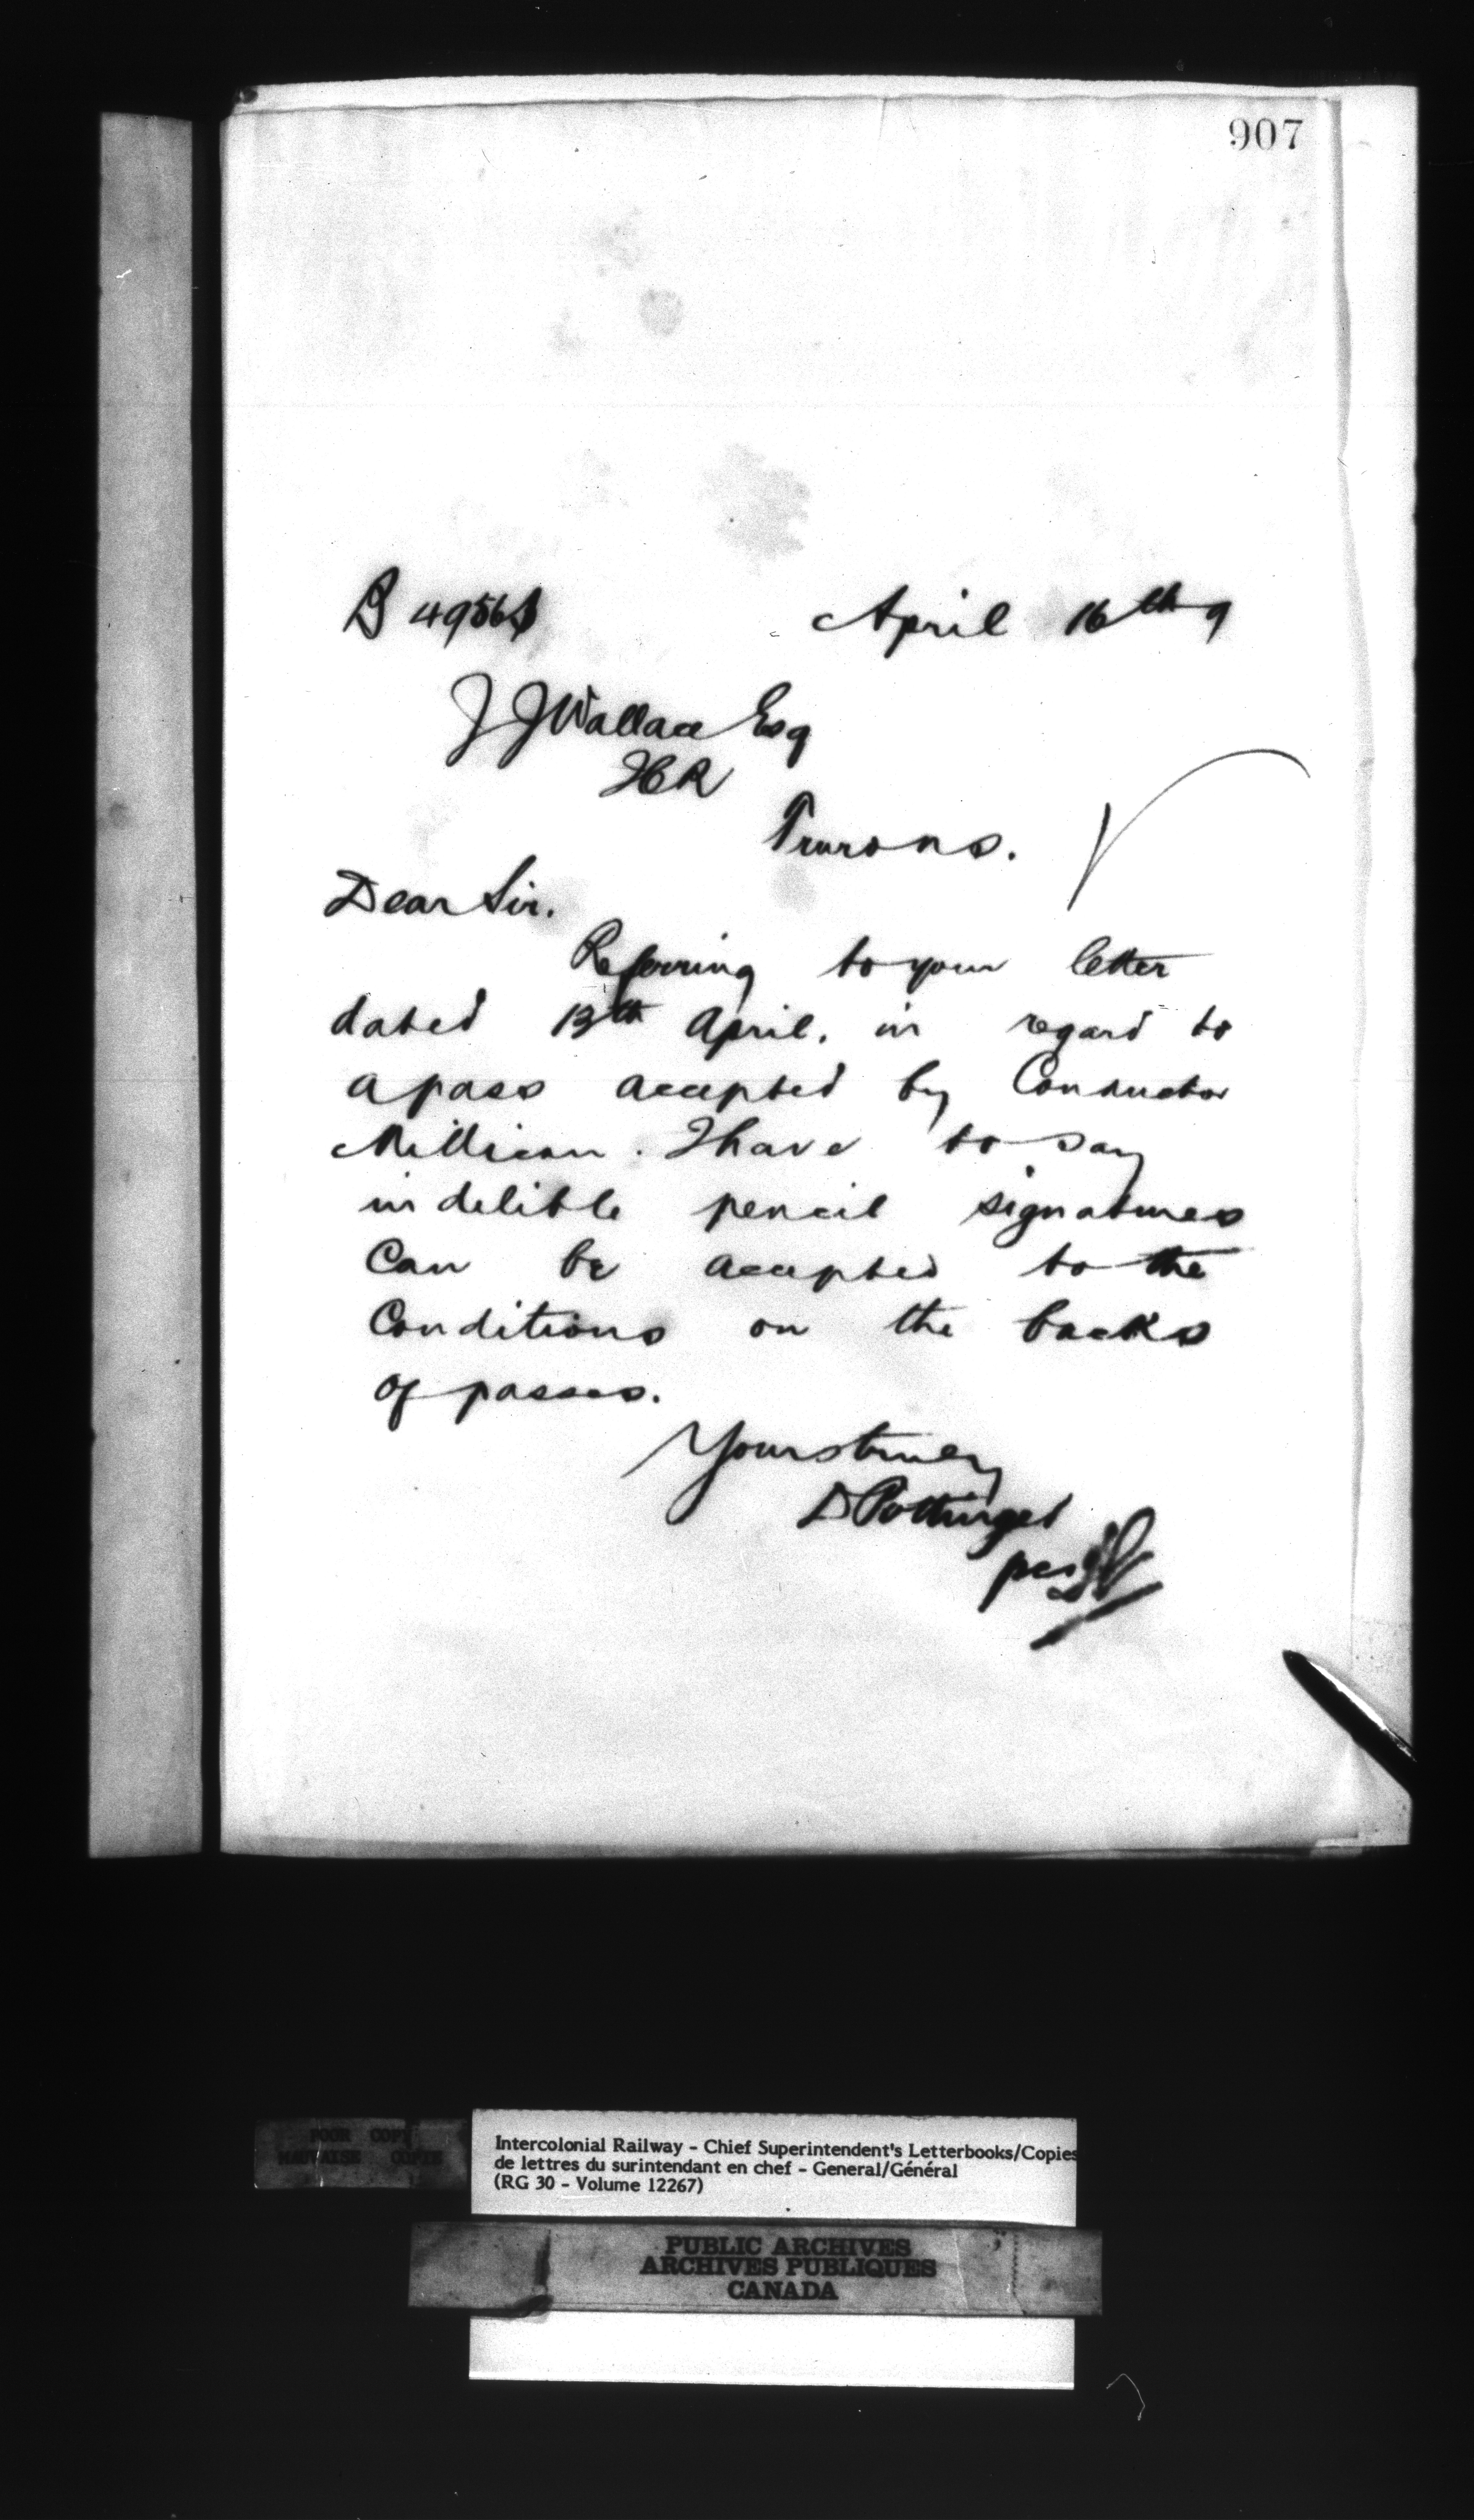 907
April 16th 9
J J Wallace Esq
ICR
Truro N.S.
Dear Sir.
Referring to your letter
dated 13th April. in regard to
a pass accepted by Conductor
Millican. I have to say
indelible pencil signatures
can be accepted to the
Conditions on the backs
of passes.
Yours truly
D Pottinger
per
POOR COPY
MAUVAISE COPIE
Intercolonial Railway - Chief Superintendent's Letterbooks/Copies
de lettres du surintendant en chef - General/Général
(RG 30 - Volume 12267)
PUBLIC ARCHIVES
ARCHIVES PUBLIQUES
CANADA